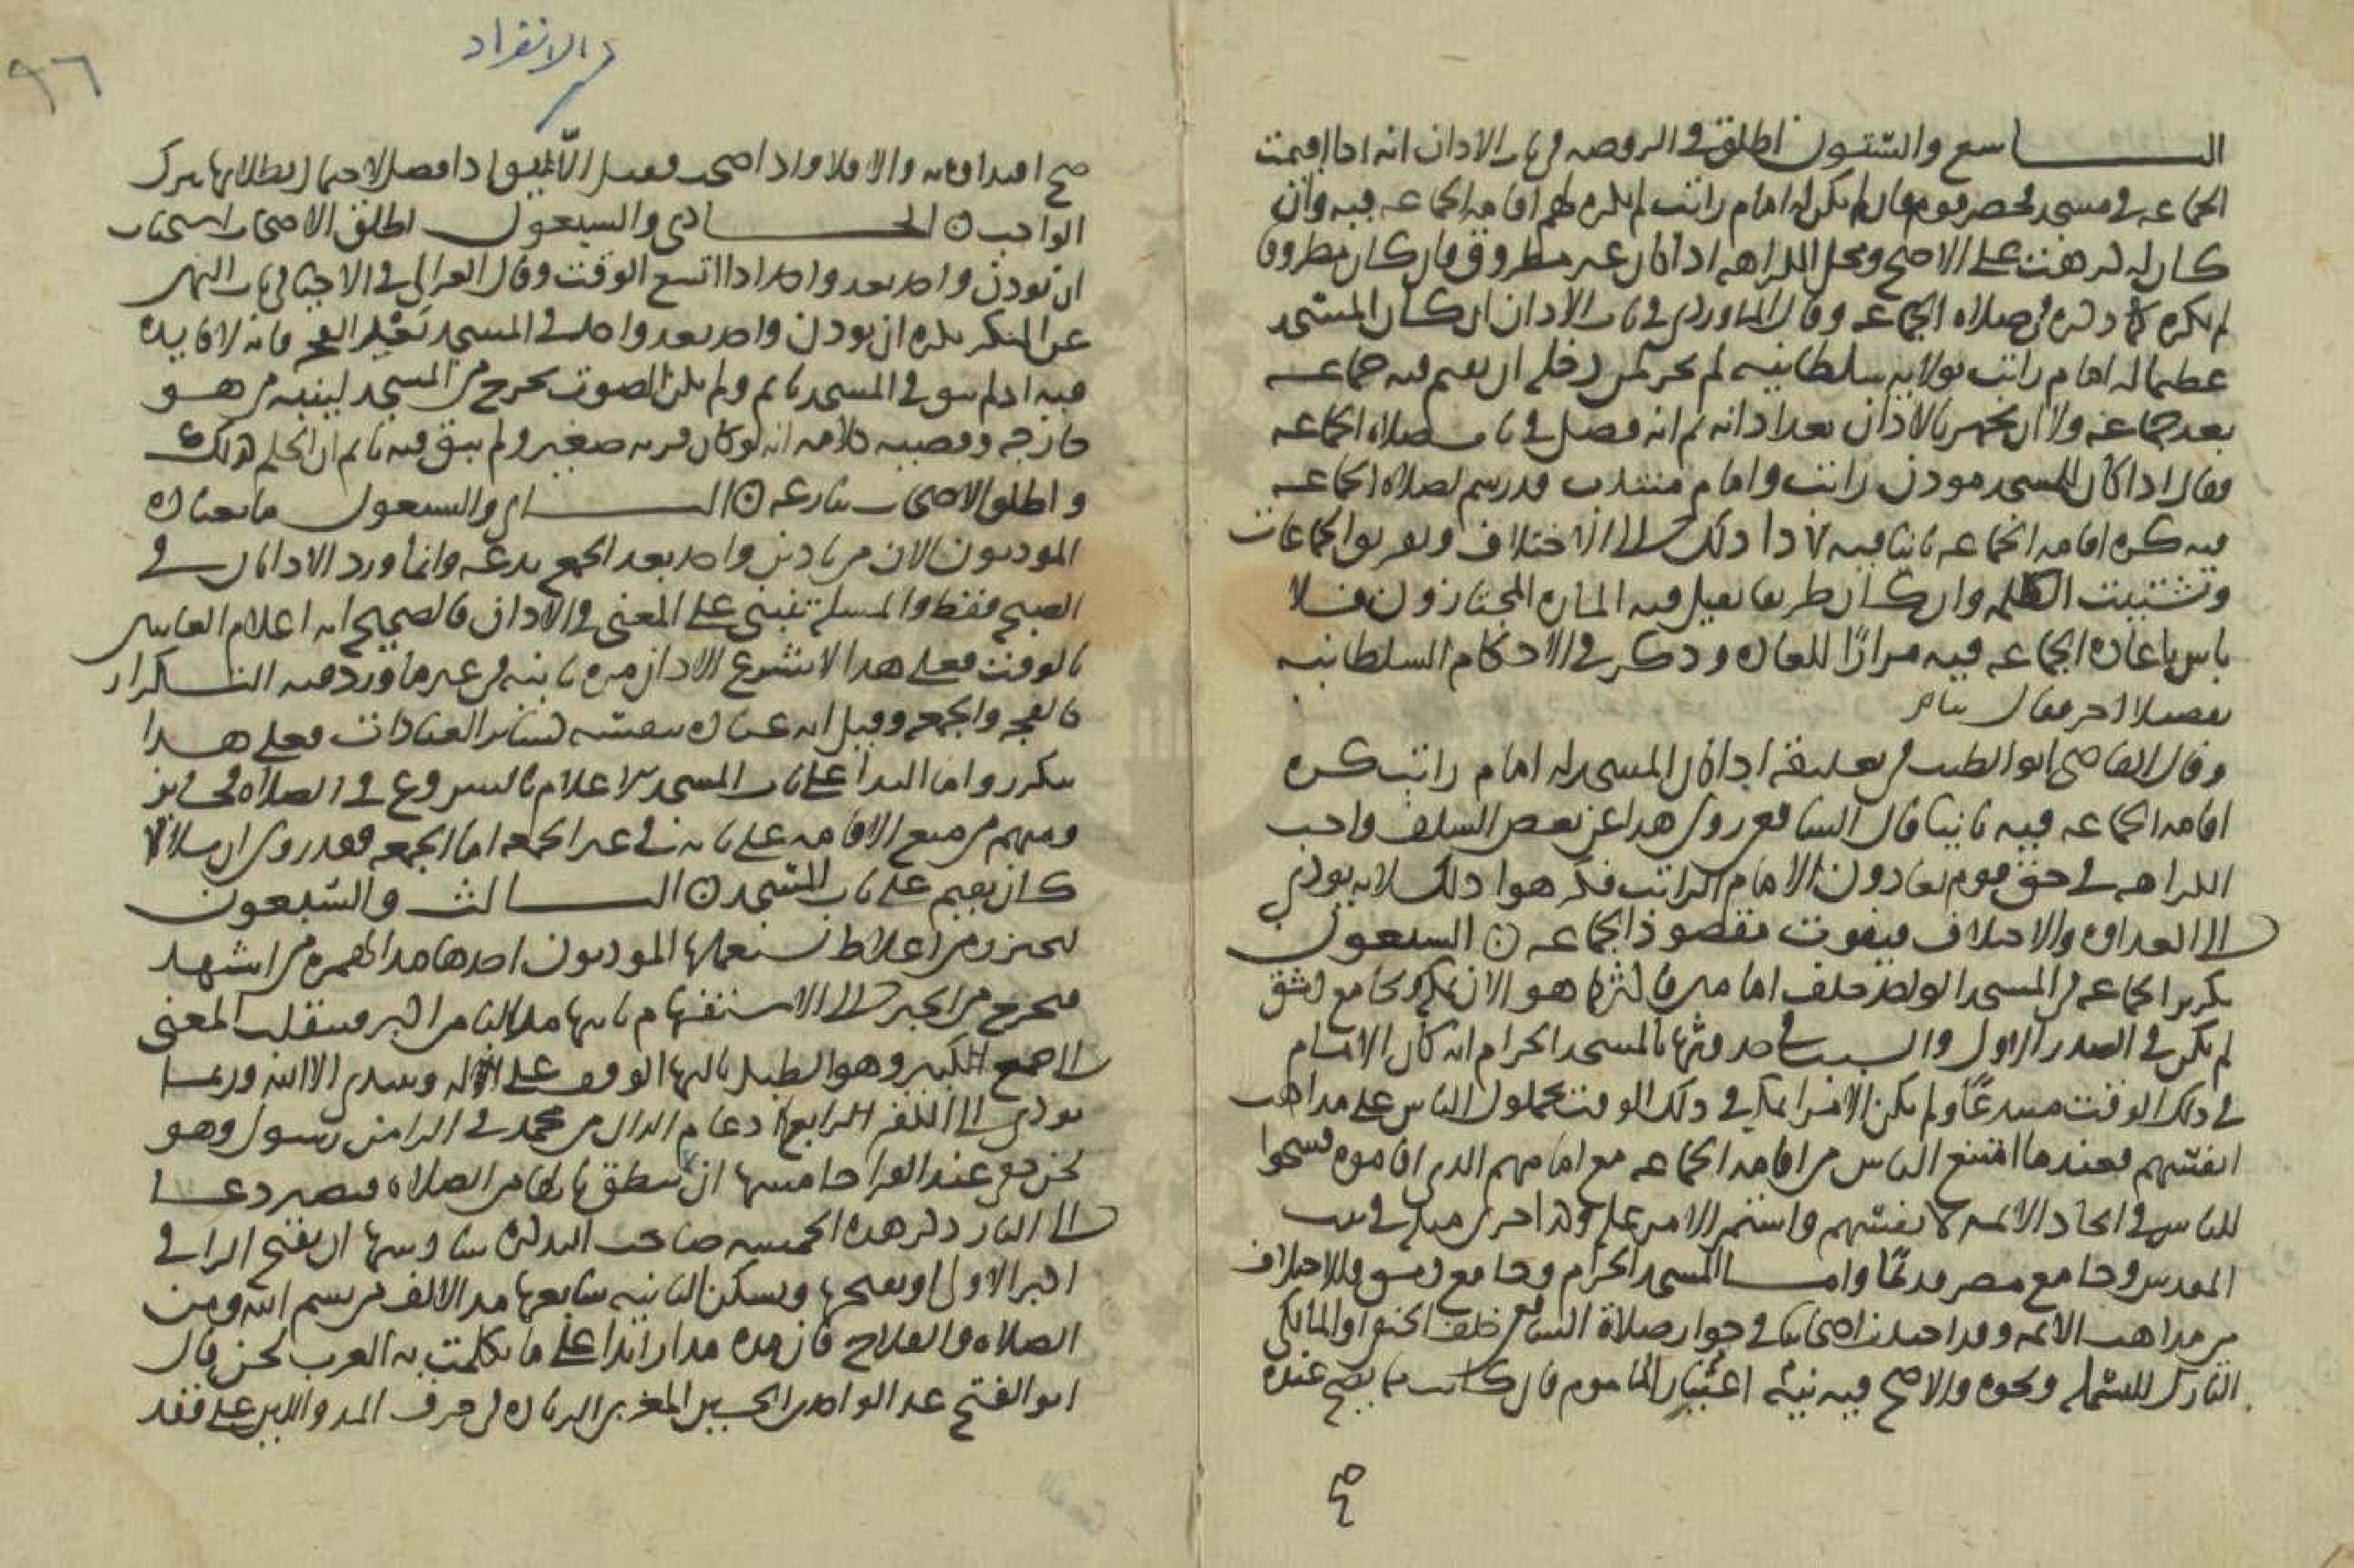 التاسع والستون اطلق في الروضه في باب الاذان انه اذا اقيمت
الجماعه في مسجد فحضر قوم فان لم يكن له امام راتب لم يكره لهم اقامه الجماعه فيه وان
كان له كرهت على الاصح ومحل الكراهه اذا كان غير مطروق فان كان مطروقا
لم يكره كما ذكره في صلاه الجماعه وقال الماوردي في باب الاذان ان كان المسجد
عظيما له امام راتب بولايه سلطانيه لم يجز لمن دخله ان يقيم فيه جماعه
بعد جماعته ولا ان يجهر بالاذان بعد اذانه ثم انه فصل في باب صلاه الجماعه
فقال اذا كان للمسجد موذن راتب وامام منتدب قد رسم لصلاه الجماعه
فيه كره اقامه الجماعه ثانيا فيه لاداء ذلك الى الاختلاف وتفريق الجماعات
وتشتيت الكلمه وان كان طريقا يصلي فيه الماره المجتازون فلا
باس باعاده الجماعه فيه مرارا للعاده وذكر في الاحكام السلطانيه
تفصيلا اخر فقال
وقال القاضي ابو الطيب في تعليقه اذا كان المسجد له امام راتب كره
اقامه الجماعه فيه ثانيا قال الشافعي روي هذا عن بعض السلف واحب
الكراهه في حق قوم يعادون الامام الراتب فكرهوا ذلك لانه يودي
الى العداوه والاختلاف فيفوت مقصود الجماعه ن السبعون
تكرير الجماعه في المسجد الواحد خلف امامين فاكثر كما هو الان بمكه وجامع دمشق
لم يكن في الصدر الاول والسبب في حدوثها بالمسجد الحرام انه كان الامام
في ذلك الوقت مبتدعا ولم يكن الامراء بمكه في ذلك الوقت يحملون الناس على مذاهب
انفسهم فعندما امتنع الناس من اقامه الجماعه مع امامهم الذي اقاموه سمحوا
للناس في اتخاذ الائمه لانفسهم واستمر الامر عليه وقد اجري مثله في بيت
المقدس وجامع مصر قديما واما المسجد الحرام وجامع دمشق فللاختلاف
بين مذاهب الائمه وقد اختلف اصحابنا في جواز صلاة الشافعي خلف الحنفي او المالكي
التارك للبسمله ونحوه والاصح فيه نيته اعتبار الماموم فان كانت مما يصح عنده
في الانفراد
٩٦
صح اقتداوه به والا فلا واذا صحت
الواجب ن الحادي والسبعون اطلق الاصحاب استحباب
ان يوذن واحد بعد واحد اذا اتسع الوقت وقال الغزالي في الاحيا في باب النهي
عن المنكر يكره ان يوذن واحد بعد واحد في المسجد قبل الفجر فانه لا فايده
فيه اذ لم يبق في المسجد نايم ولم يكن الصوت يخرج من المسجد لينبه من هو
خارجه وقضيه كلامه انه لو كان قريه صغير ولم يبق فيه نايم ان الحكم كذلك
واطلاق الاصحاب ينازعه ن الثاني والسبعون ما يعتاده
الموذنون الان من تاذين واحد بعد الجمع بدعه وانما ورد الاذانان في
الصبح فقط والمسله تنبني على المعنى في الاذان فالصحيح انه اعلام الغايبين
بالوقت فعلى هذا لا يشرع الاذان مره ثانيه في غير ما ورد فيه التكرار
كالفجر والجمعه وقيل انه عباده بنفسه كساير العبادات فعلى هذا
يتكرر واما الندا على باب المسجد للاعلام بالشروع في الصلاه فجايز
ومنهم من منع الاقامه على بابه في غير الجمعه اما الجمعه فقد روي ان بلالا
كان يقيم على باب المسجد ن الثالث والسبعون
ليحترز من اغلاط يستعملها الموذنون احدها مد الهمزه من اشهد
فيخرج من الخبر الى الاستفهام ثانيها مد الباء من اكبر فينقلب المعنى
الى جمع الكبر وهو الطبل ثالثها الوقف على اله ويبتدي الا الله وربما
يودي الى الكفر الرابع ادغام الدال من محمد في الرا من رسول وهو
لحن خفي عند القرا خامسها ان لا ينطق بالها من الصلاه فيصير دعا
الى النار ذكر هذه الخمسه صاحب التذكره سادسها ان يفتح الرا في
اكبر الاول او يفتحها ويسكن الثانيه سابعها مد الالف من اسم الله ومن
الصلاه والفلاح فان مده مدا زايدا على ما تكلمت به العرب لحن قال
ابو الفتح عبد الواحد بن الحسين المقري الزياده في حرف المد واللين على قدر